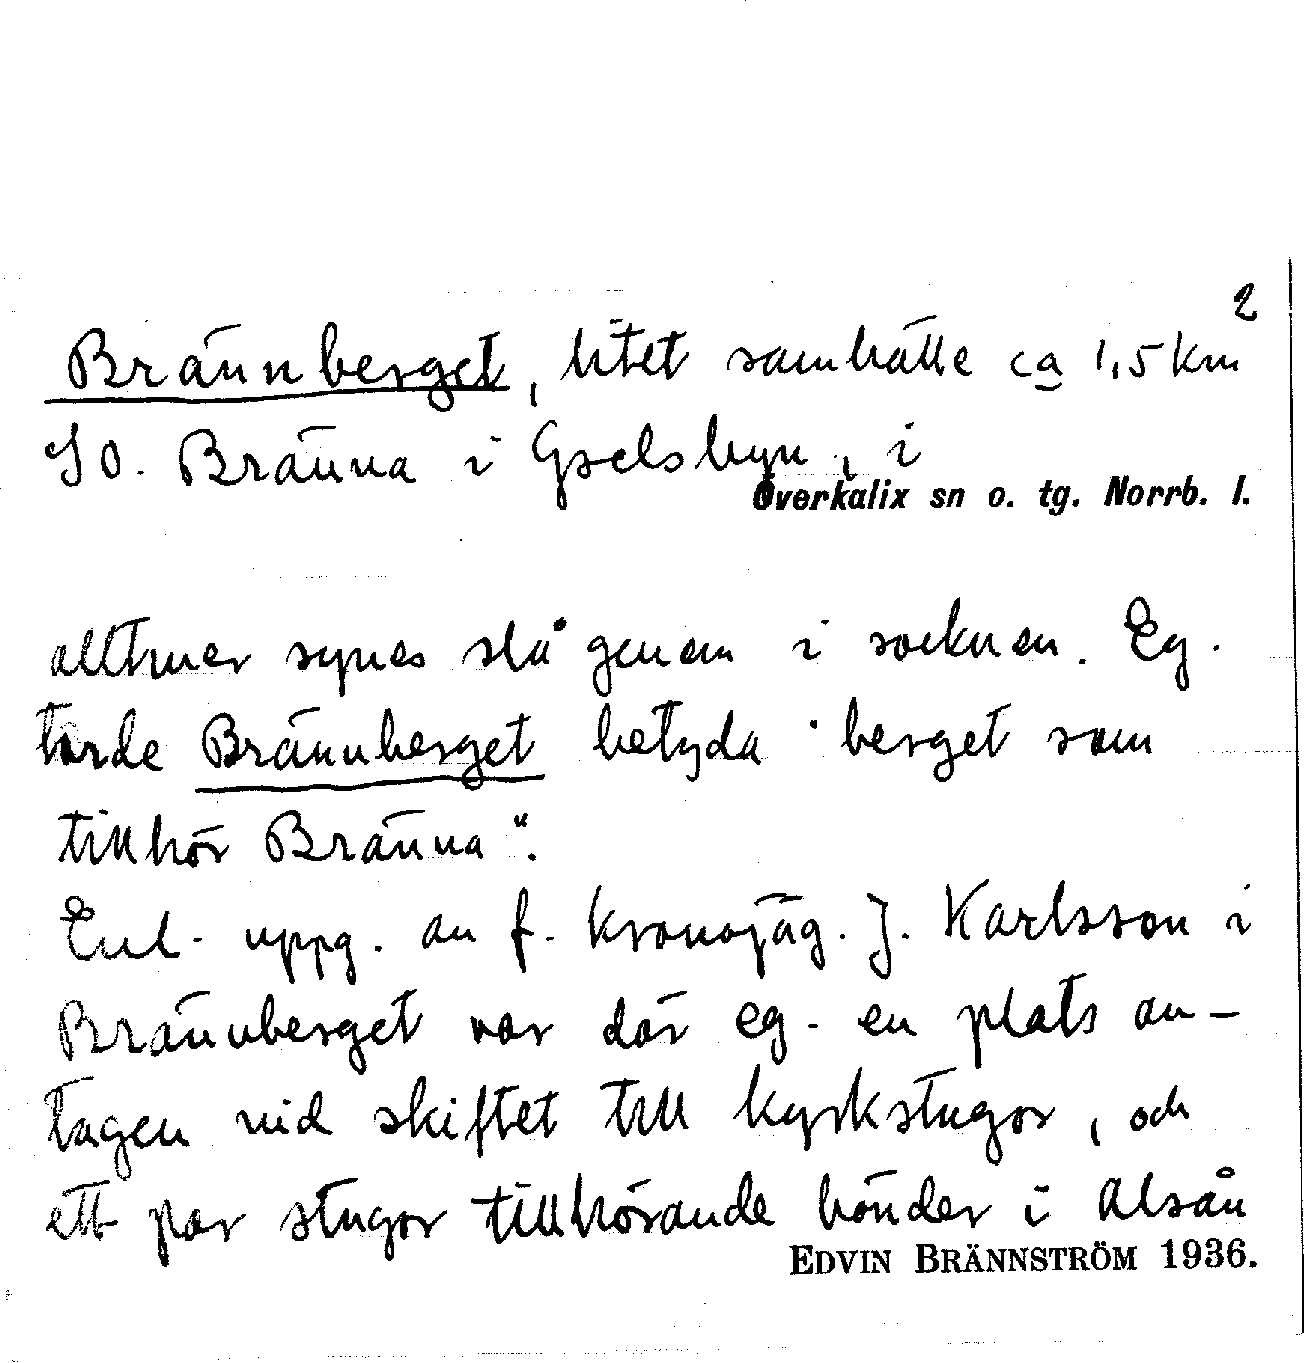 2
Brännberget, litet samhälle ca 1,5 km
SO. Bränna i Gselsbyn, i
Överkalix sn o. tg. Norrb. l.
alltmer synes slå genom i socknen. Eg.
torde Brännberget betyda "berget som
tillhör Bränna".
Enl. uppg. av f. kronojäg. J. Karlsson i
Brännberget var där eg. en plats an-
tagen vid skiftet till kyrkstugor, och
ett par stugor tillhörande bönder i Alsån
EDVIN BRÄNNSTRÖM 1936.